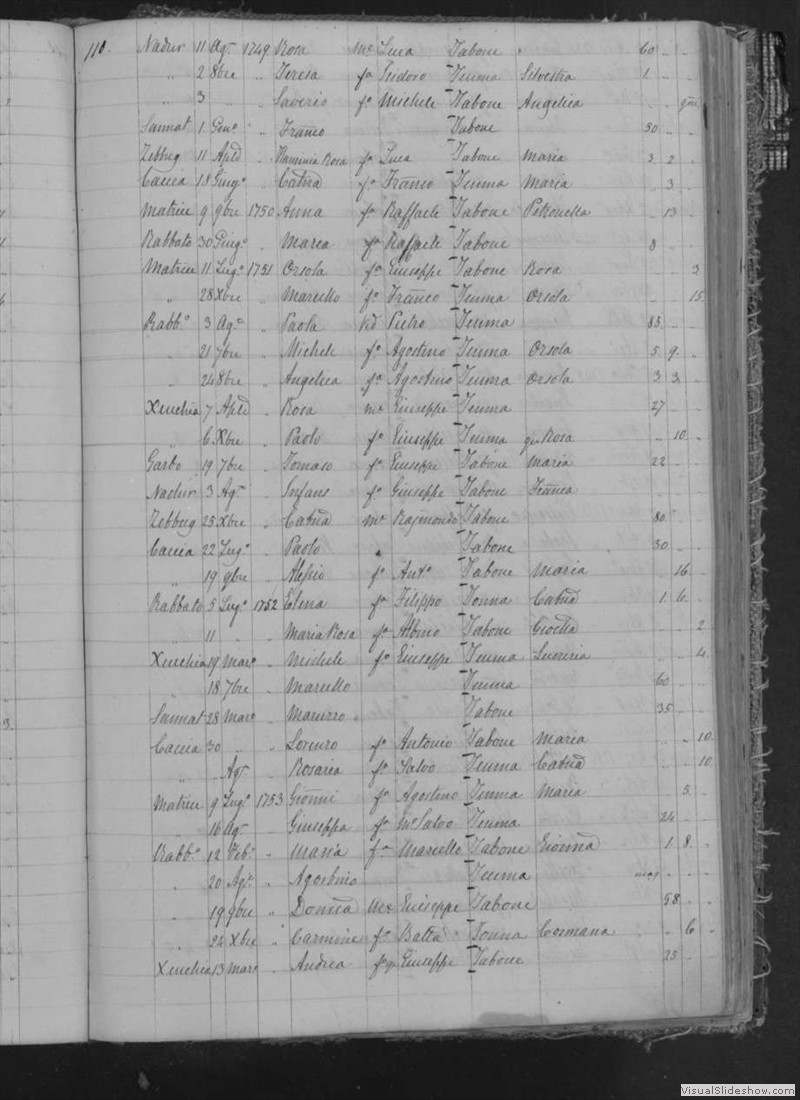 110. Nadur 11 Agto 1749 Rosa me Luca Tabone 60
" 2 8bre " Teresa fa Isidoro Teuma Silvestra 1
" 3 " " Saverio fo Michele Tabone Angelica
Sannat 1 Geno " Franco Tabone 50
Zebbug 11 Aple " Rosa fa Luca Tabone Maria 3 2
Caccia 18 Giugo " fa Franco Teuma Maria 3
Matrice 9 9bre 1750 Anna fa Raffaele Tabone Petronella 13
Rabbato 30 Giugo " Marea fa Raffaele Tabone 8
Matrice 11 Lugo 1751 Orsola fa Giuseppe Tabone Rosa 3
" 28 Xbre " Marcello fo Franco Teuma Orsola 15
Rabbo 3 Ago " Paola Vd Pietro Teuma 85
" 21 7bre " Michele fo Agostino Teuma Orsola 5 9
" 24 8bre " Angelica fa Agostino Teuma Orsola 3 3
Xeuchia 7 Aple " Rosa me Giuseppe Teuma 27
" 6 Xbre " Paolo fo Giuseppe Teuma qm Rosa 10
Garbo 19 7bre " Tomaso fo Giuseppe Tabone Maria 22
Nadur 3 Ago " Infans fo Giuseppe Tabone Franca
Zebbug 25 Xbre " me Raimondo Tabone 80
Caccia 22 Lugo " Paolo Tabone 30
" 19 9bre " Alessio fo Anto Tabone Maria 16
Rabbato 5 Lugo 1752 Elena fa Filippo Tonna 1 6
" 11 " " Maria Rosa fa Albino Tabone 2
Xeuchia 19 Maro " Michele fo Giuseppe Teuma Lucrezia 4
" 18 7bre " Marcello Teuma 60
Sannat 28 Maro " Tabone 35
Caccia 30 " " Lorenzo fo Antonio Tabone Maria 10
" Ago " Rosaria fa Salvo Teuma 10
Matrice 9 Lugo 1753 Gionni fo Agostino Teuma Maria 5
" 16 Ago " Giuseppa fa Mo Salvo Teuma 24
Rabbo 12 Febo " Maria fa Marcello Tabone 1 8
" 20 Ago " Agostino Teuma
" 19 9bre " me Giuseppe Tabone 58
" 24 Xbre " Carmine fo Batta Tonna Cosmana 6
Xeuchia 13 Maro " Andrea fo qm Giuseppe Tabone 25
3
VisualSlideshow.com